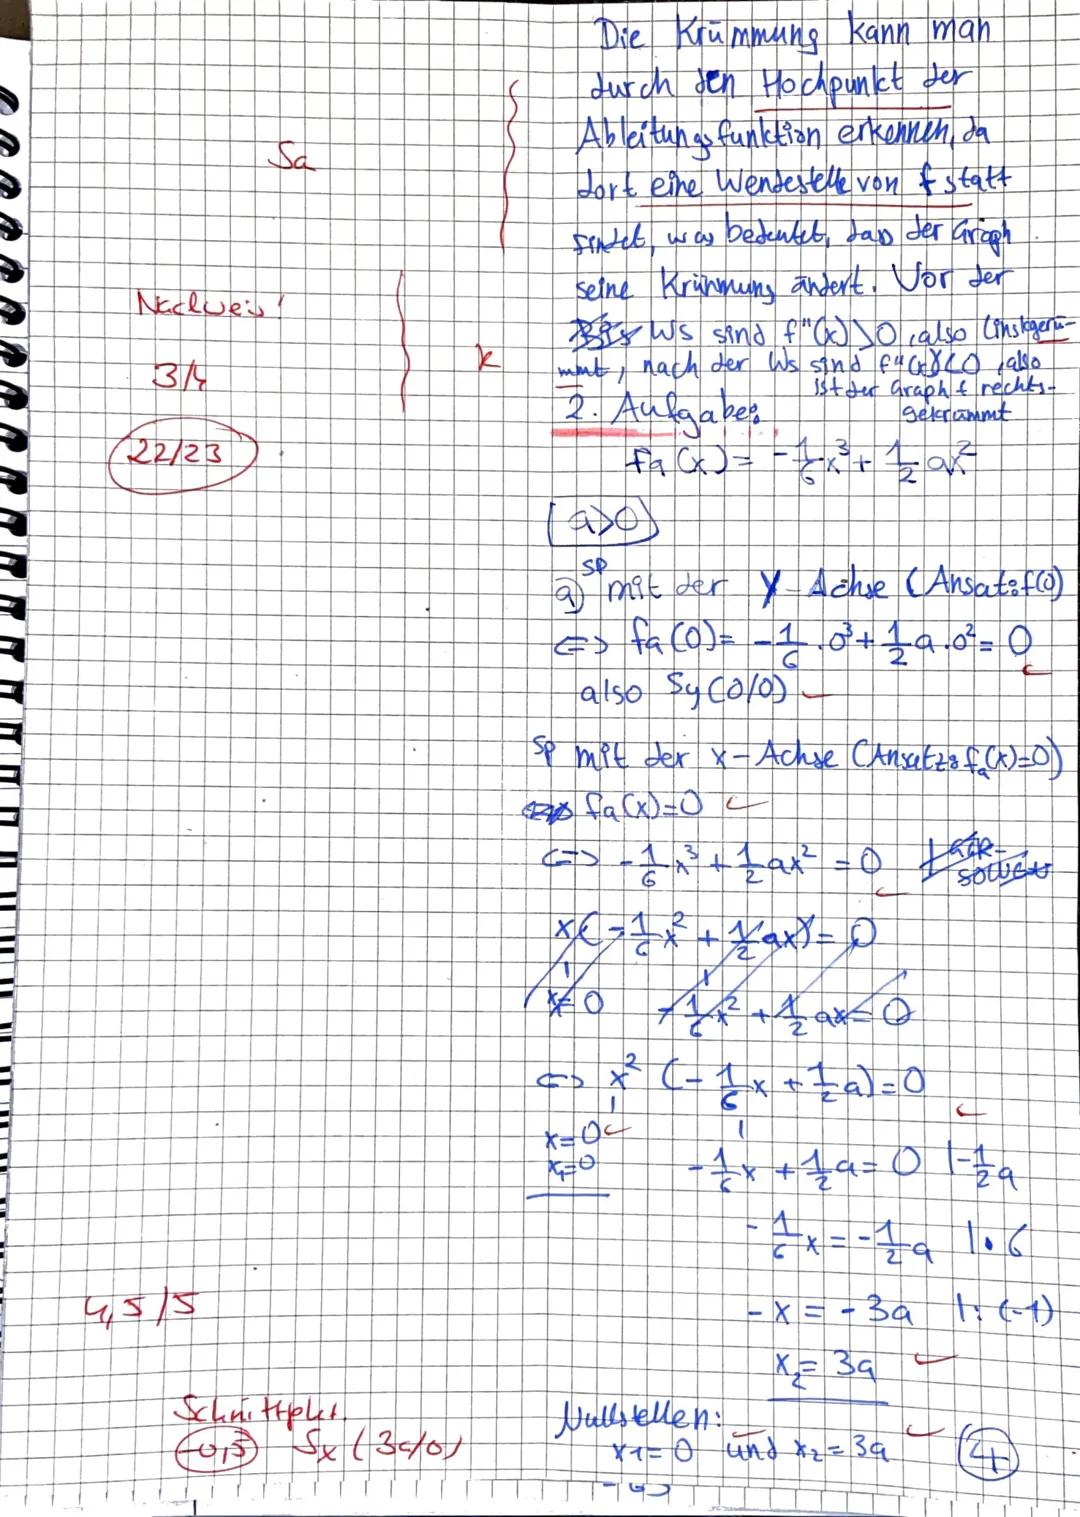 Die Krümmung kann man
durch den Hochpunkt der
Ableitungsfunktion erkennen, da
Sa
dort eine Wendestelle von f statt
findet, was bedeutet, dass der Graph
seine Krümmung ändert. Vor der
Nachweis!
Ws sind f"(x)>0, also linksgekrü-
k
mmt, nach der Ws sind f"(x)<0, also
3/4
ist der Graph f rechts-
gekrümmt
2. Aufgabe:
22/23
fa(x) = -1/6 x³ + 1/2 ax²
a>0
a) SP mit der y-Achse (Ansatz: f(0)
<=> fa(0) = -1/6 · 0³ + 1/2 a · 0² = 0
also Sy(0/0)
SP mit der x-Achse (Ansatz: fa(x)=0)
fa(x)=0
<=> -1/6 x³ + 1/2 ax² = 0
x(-1/6 x² + 1/2 ax) = 0
x=0 -1/6 x² + 1/2 ax = 0
<=> x² (-1/6 x + 1/2 a) = 0
x=0
x1=0
-1/6 x + 1/2 a = 0 |-1/2 a
-1/6 x = -1/2 a |·6
4,5/5
-x = -3a |:(-1)
x2 = 3a
Schnittpkt.
Nullstellen:
-0,5 Sx (3a/0)
x1=0 und x2=3a